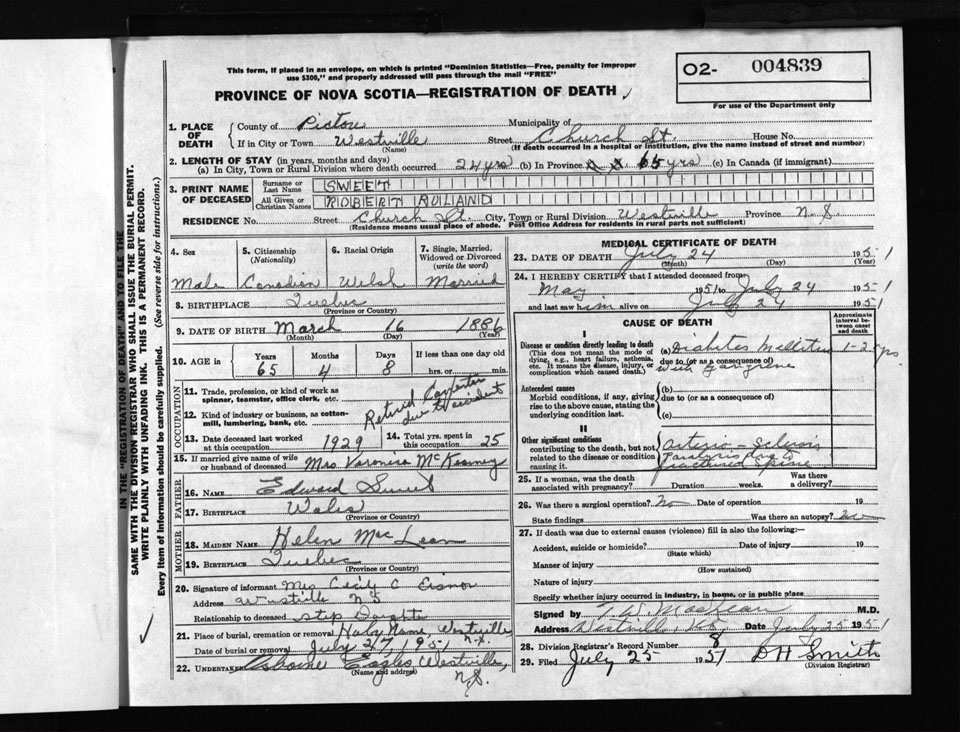 This form, if placed in an envelope, on which is printed "Dominion Statistics—Free, penalty for improper
use $300," and properly addressed will pass through the mail "FREE"
PROVINCE OF NOVA SCOTIA—REGISTRATION OF DEATH
O2- 004839
For use of the Department only
1. PLACE OF DEATH
County of Pictou Municipality of
If in City or Town Westville Street Church St. House No.
(Name) (If death occurred in a hospital or institution, give the name instead of street and number)
2. LENGTH OF STAY (in years, months and days)
(a) In City, Town or Rural Division where death occurred 24 yrs (b) In Province 65 yrs (c) In Canada (if immigrant)
3. PRINT NAME OF DECEASED
Surname or Last Name SWEET
All Given or Christian Names ROBERT ROLAND
RESIDENCE No. Street Church St. City, Town or Rural Division Westville Province N.S.
(Residence means usual place of abode. Post Office Address for residents in rural parts not sufficient)
4. Sex 5. Citizenship (Nationality) 6. Racial Origin 7. Single, Married, Widowed or Divorced (write the word)
Male Canadian Welsh Married
8. BIRTHPLACE Quebec
(Province or Country)
9. DATE OF BIRTH March 16 1886
(Month) (Day) (Year)
10. AGE in Years Months Days If less than one day old
65 4 8 hrs. or min.
OCCUPATION
11. Trade, profession or kind of work as spinner, teamster, office clerk, etc.
12. Kind of industry or business, as cotton-mill, lumbering, bank, etc.
Retired Carpenter
due to accident
13. Date deceased last worked at this occupation 1929 14. Total yrs. spent in this occupation 25
15. If married give name of wife or husband of deceased Mrs Veronica McKearney
FATHER
16. NAME Edward Sweet
17. BIRTHPLACE Wales
(Province or Country)
MOTHER
18. MAIDEN NAME Helen MacLean
19. BIRTHPLACE Quebec
(Province or Country)
20. Signature of informant Mrs Cecily C Eisnor
Address Westville N S
Relationship to deceased step Daughter
21. Place of burial, cremation or removal Holy Name, Westville N.S.
Date of burial or removal July 27, 1951
22. UNDERTAKER Osborne Eagles, Westville, N.S.
(Name and address)
MEDICAL CERTIFICATE OF DEATH
23. DATE OF DEATH July 24 1951
(Month) (Day) (Year)
24. I HEREBY CERTIFY that I attended deceased from
May 1951 to July 24 1951
and last saw him alive on July 24 1951
CAUSE OF DEATH
Approximate interval between onset and death
I
Disease or condition directly leading to death
(This does not mean the mode of dying, e.g., heart failure, asthenia, etc. It means the disease, injury, or complication which caused death.)
(a) Diabetes Mellitus 1-2 yrs
due to (or as a consequence of)
with gangrene
Antecedent causes
Morbid conditions, if any, giving rise to the above cause, stating the underlying condition last.
(b)
due to (or as a consequence of)
(c)
II
Other significant conditions contributing to the death, but not related to the disease or condition causing it.
Arterio-Sclerosis
Paralysis due to
fractured spine
25. If a woman, was the death associated with pregnancy? Duration weeks. Was there a delivery?
26. Was there a surgical operation? No Date of operation 19
State findings Was there an autopsy? No
27. If death was due to external causes (violence) fill in also the following:—
Accident, suicide or homicide? Date of injury 19
(State which)
Manner of injury
(How sustained)
Nature of injury
Specify whether injury occurred in industry, in home, or in public place
Signed by T. W. MacLean M.D.
Address Westville, N.S. Date July 25 1951
28. Division Registrar's Record Number 8
29. Filed July 25 1951 D H Smith
(Division Registrar)
IN THE "REGISTRATION OF DEATH" AND TO FILE THE
SAME WITH THE DIVISION REGISTRAR WHO SHALL ISSUE THE BURIAL PERMIT.
WRITE PLAINLY WITH UNFADING INK. THIS IS A PERMANENT RECORD.
Every item of Information should be carefully supplied. (See reverse side for instructions.)